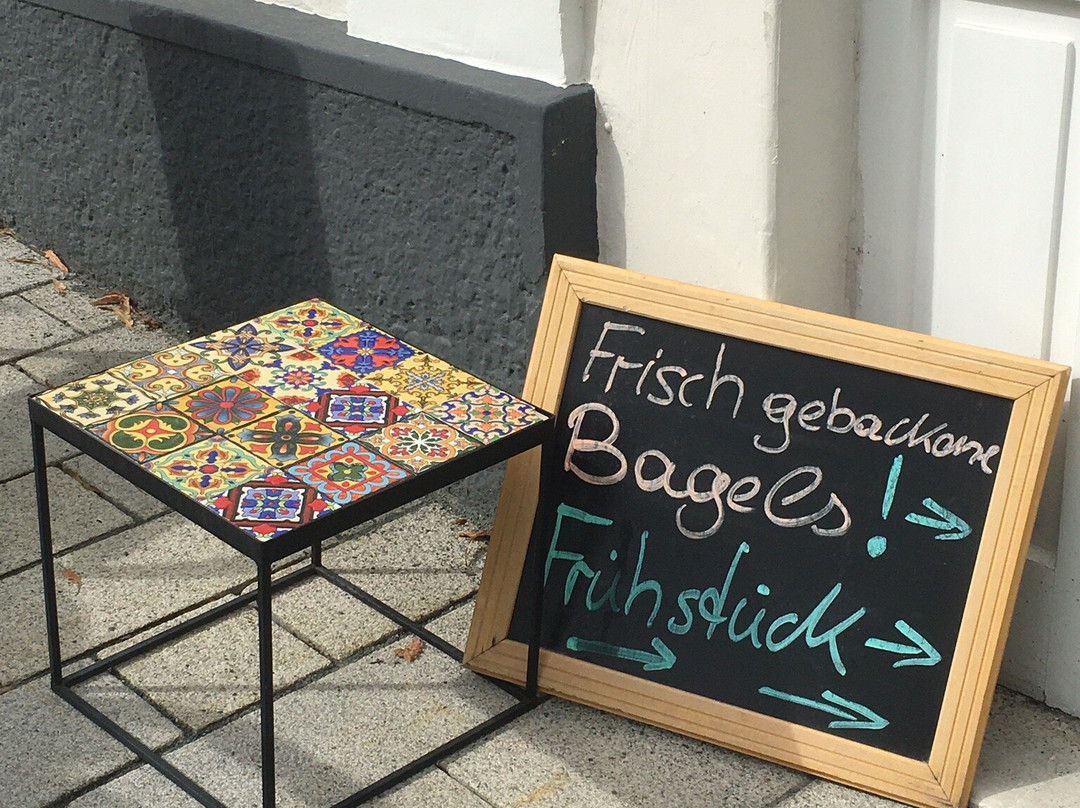 Frisch gebackene
Bagels ! →
Frühstück →
→ →